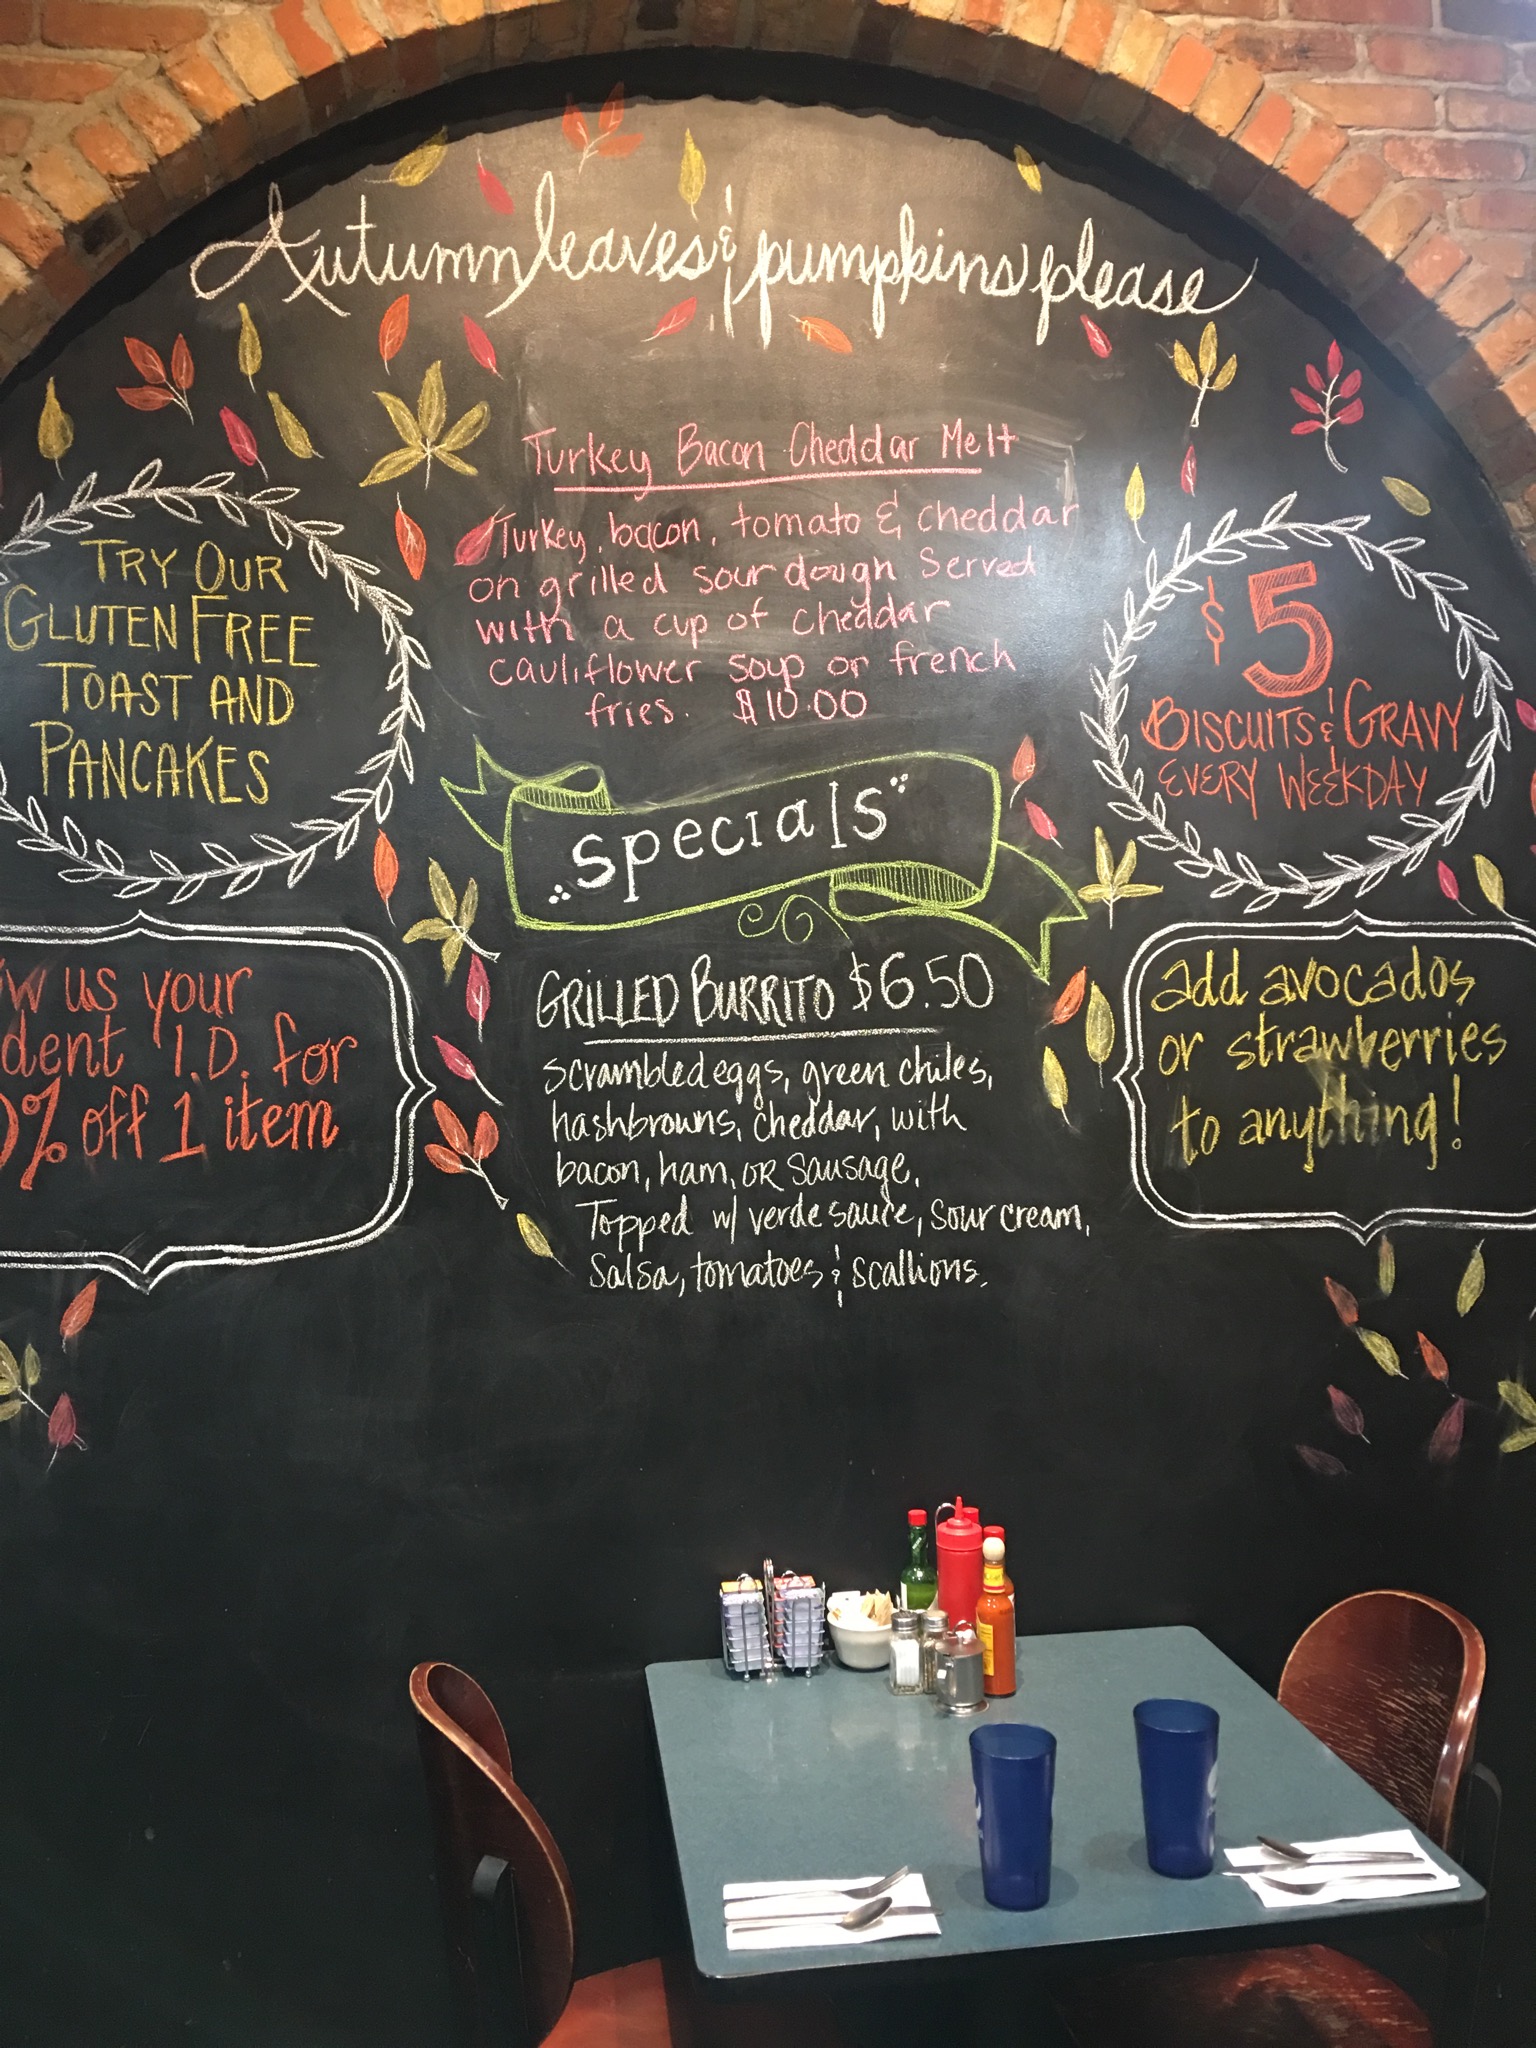 Autumn leaves & pumpkins please
Turkey Bacon Cheddar Melt
Turkey, bacon, tomato & cheddar
on grilled sour dough Served
with a cup of cheddar
cauliflower soup or french
fries. $10.00
TRY OUR
GLUTEN FREE
TOAST AND
PANCAKES
$5
BISCUITS & GRAVY
EVERY WEEKDAY
specials
w us your
dent I.D. for
0% off 1 item
GRILLED BURRITO $6.50
scrambled eggs, green chiles,
hashbrowns, cheddar, with
bacon, ham, OR Sausage.
Topped w/ verde sauce, sour cream,
Salsa, tomatoes & scallions.
add avocados
or strawberries
to anything!